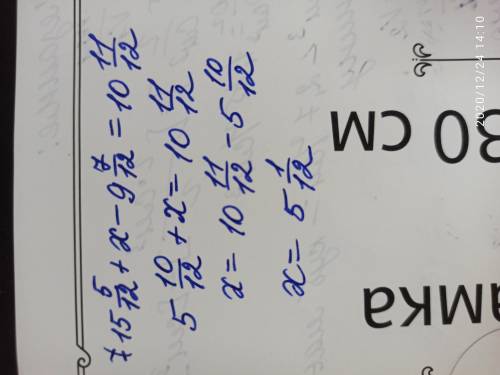 +15 5/12 + x - 9 7/12 = 10 11/12
5 10/12 + x = 10 11/12
x = 10 11/12 - 5 10/12
x = 5 1/12
30 см
амка
2020/12/24 14:10